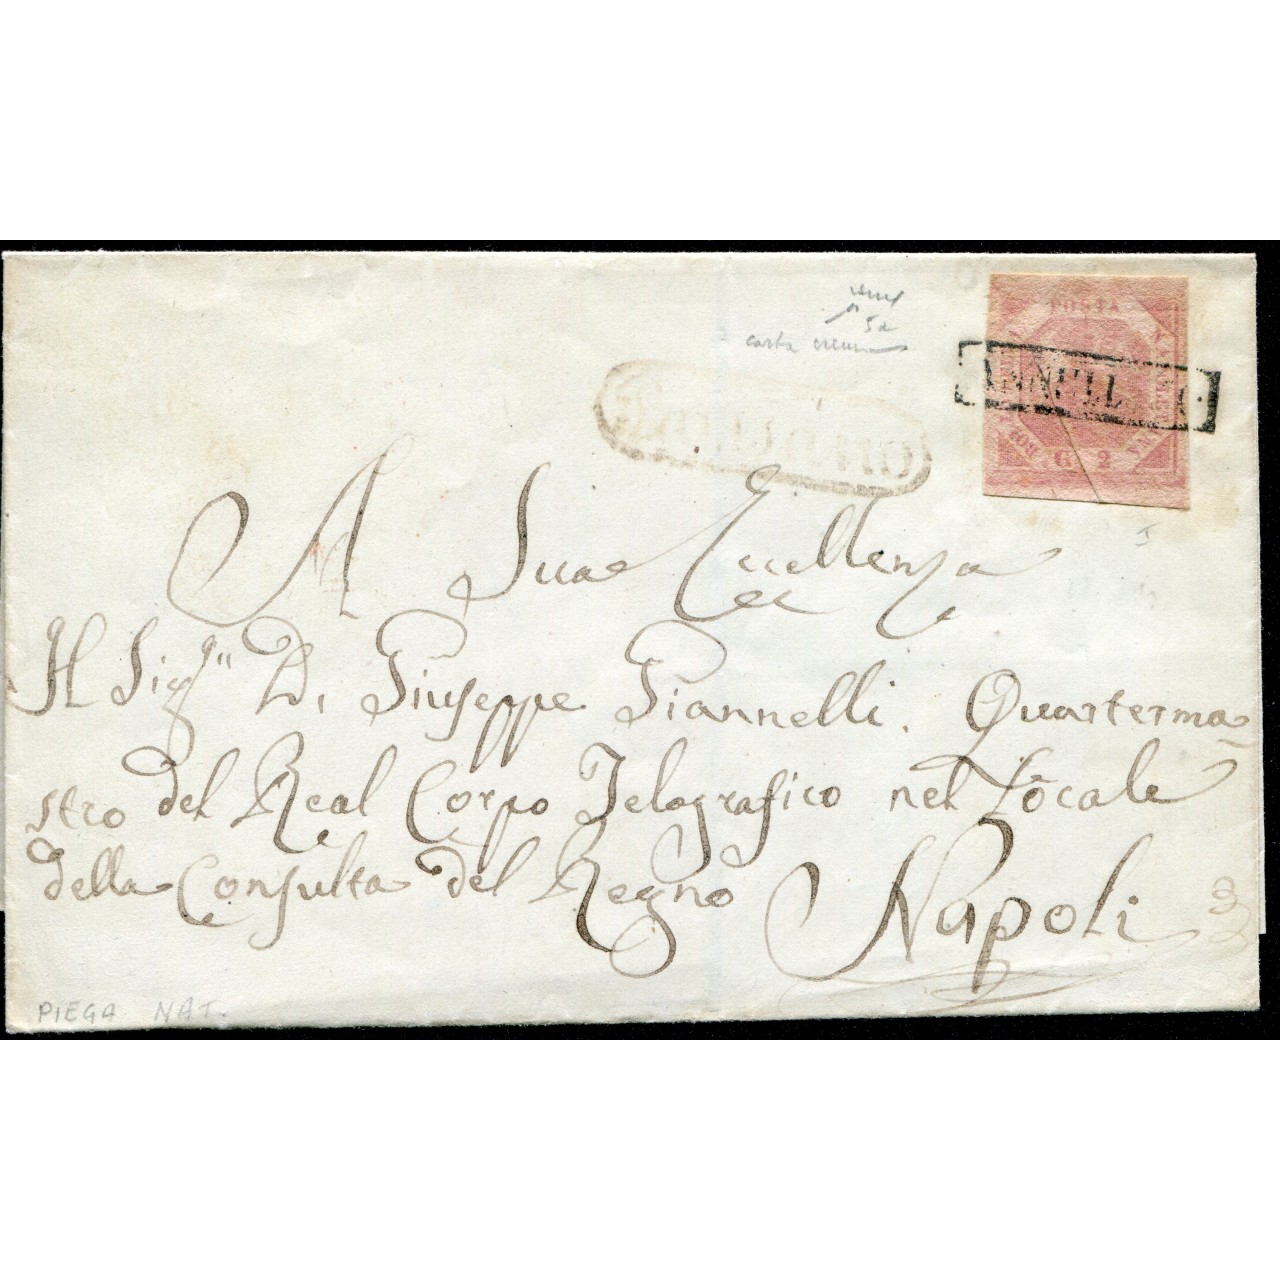 5a
carta
POSTA
ANNULLATO
G. 2
A Sua Eccellenza
Il Sig.r D. Giuseppe Giannelli. Quarterma-
stro del Real Corpo Telegrafico nel Locale
della Consulta del Regno
Napoli
PIEGA NAT.